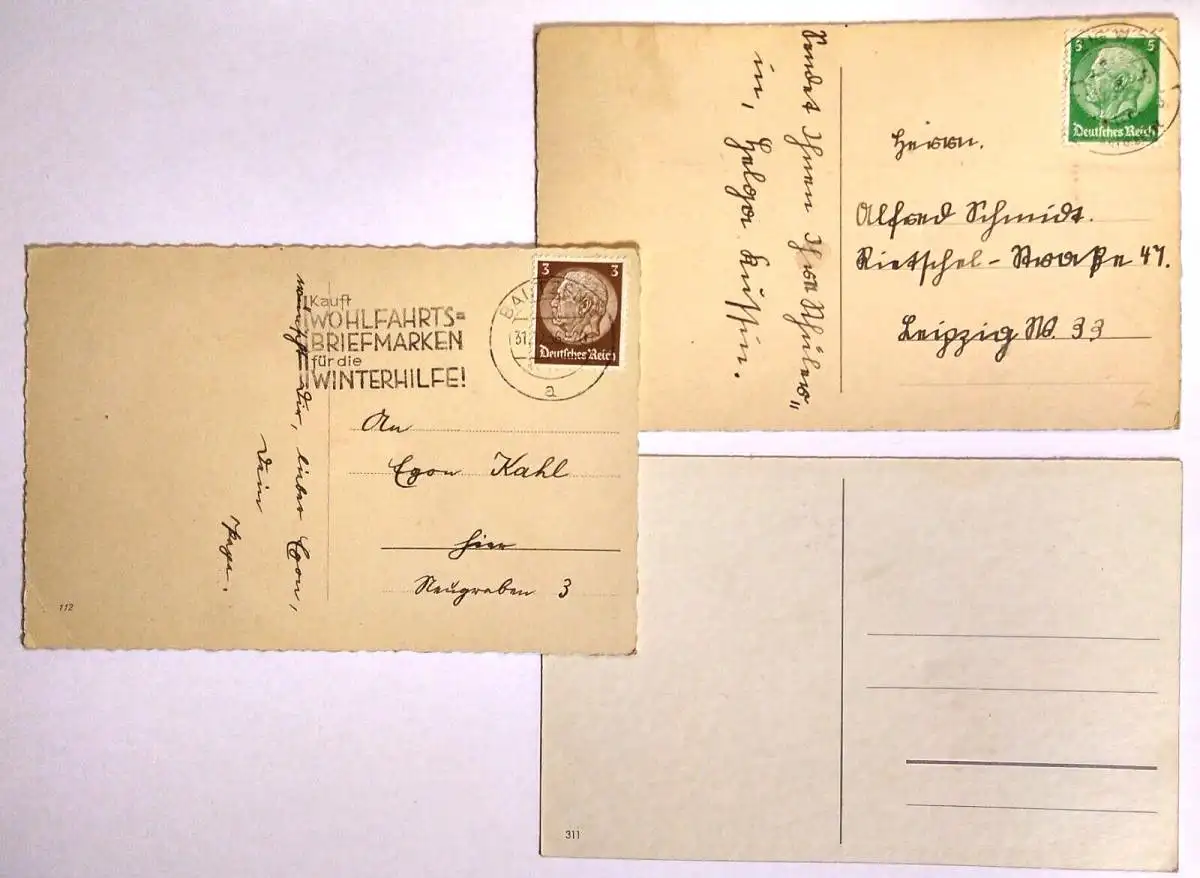 Sendet Ihnen Ihre Schüler„
in, Helga
5 5
Deutsches Reich
Herrn.
Alfred Schmidt.
Rietschel-Straße 47.
Leipzig W. 33
wünscht Dir, lieber Egon,
Dein
Kauft
WOHLFAHRTS=
BRIEFMARKEN
für die
WINTERHILFE!
3 3
Deutsches Reich
31
a
An
Egon Kahl
hier
Neugraben 3
112
311